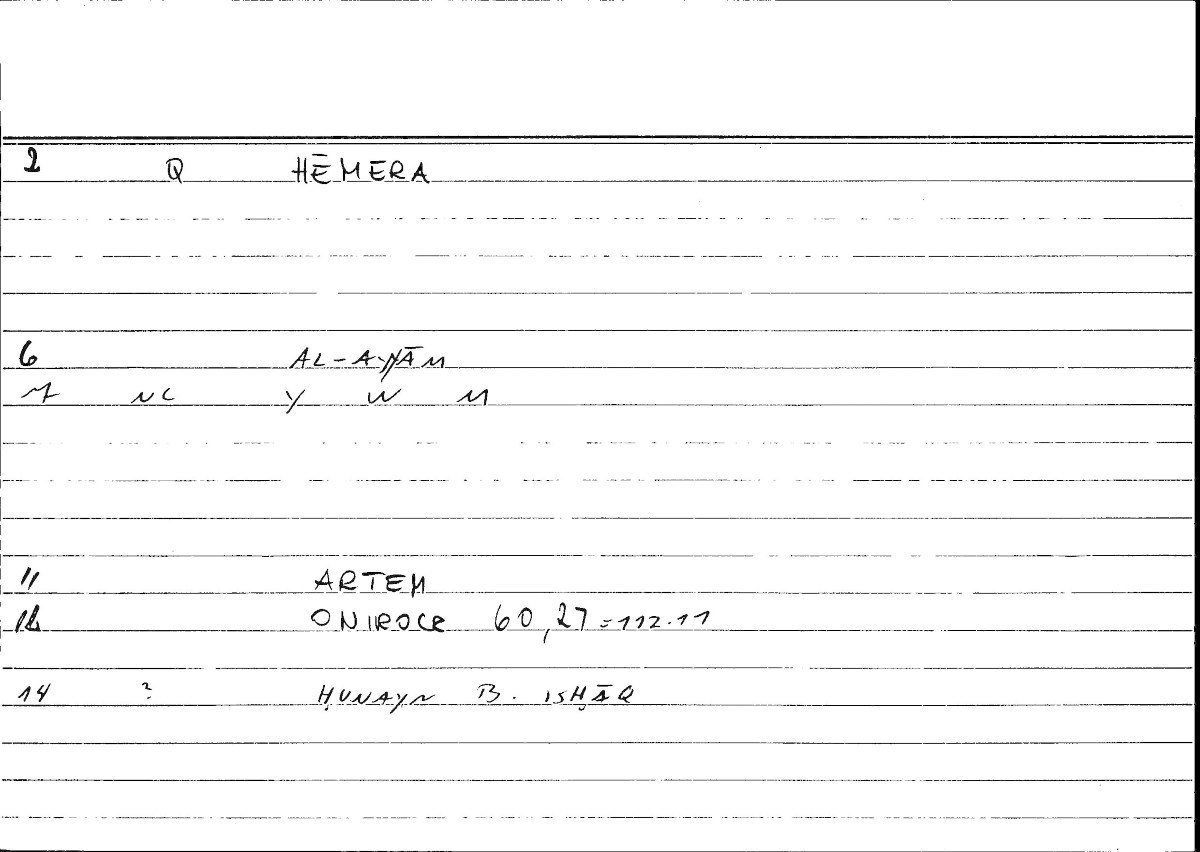 2 Q HĒMERA
6 AL-AYYĀM
7 NC Y W M
11 ARTEM
12 ONIROCR 60,27=112.11
14 ? ḤUNAYN B. ISḤĀQ